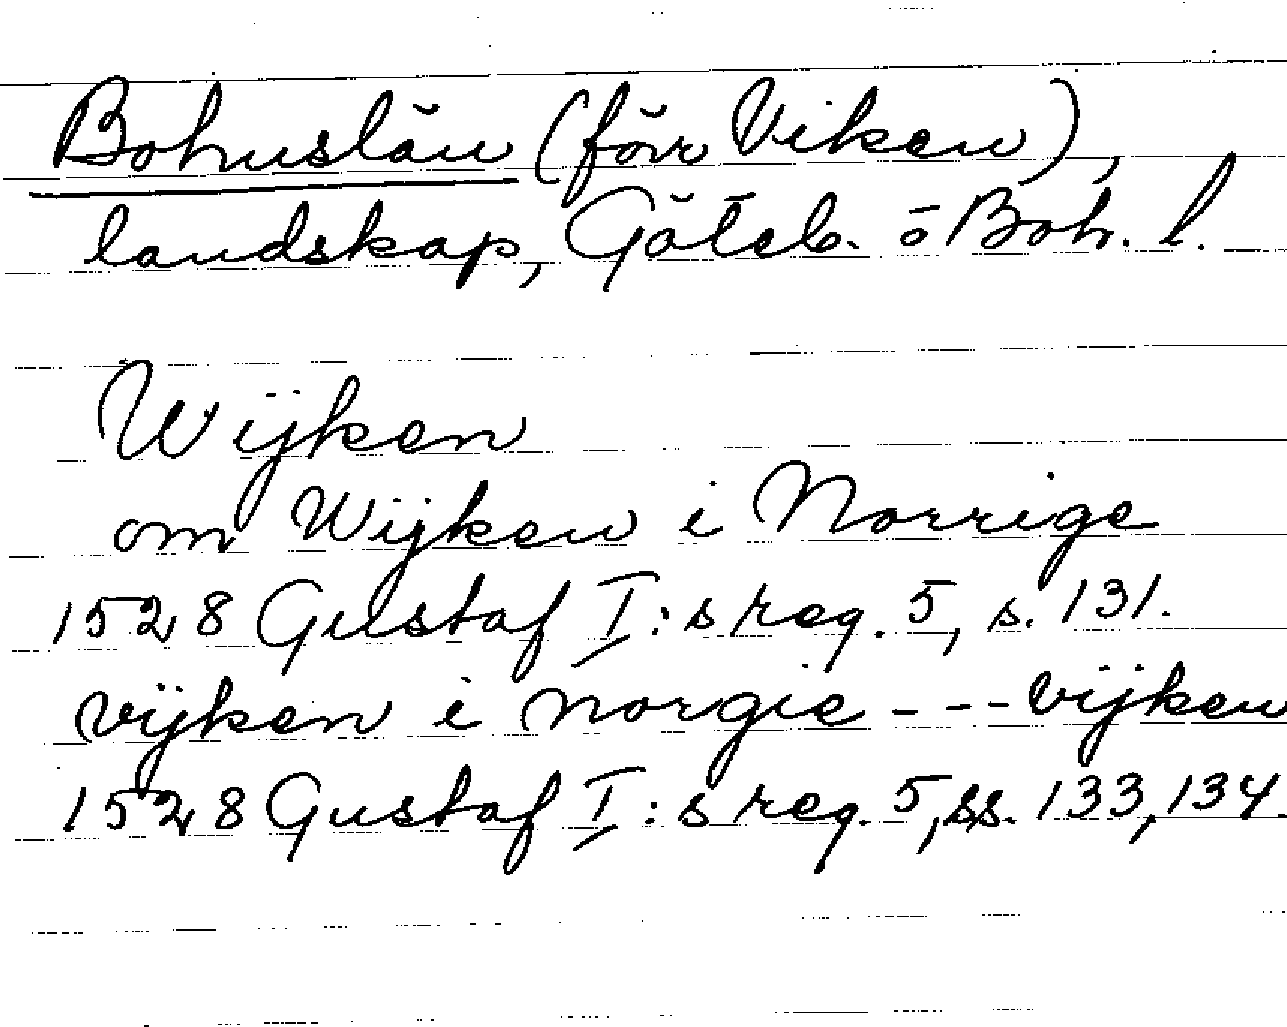 Bohuslän (förr Viken),
landskap, Göteb. o Boh. l.
Wijken
om Wijken i Norrige
1528 Gustaf I:s reg. 5, s. 131.
vijken i norgie - - - vijken
1528 Gustaf I:s reg. 5, ss. 133, 134.